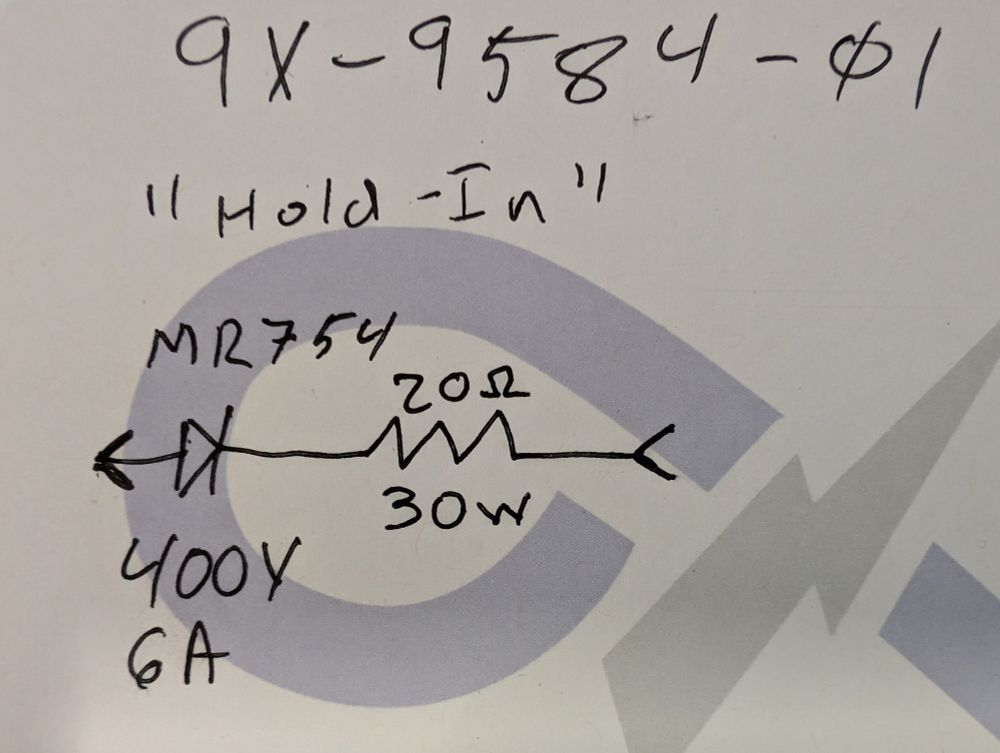 9X-9584-Ø1
"Hold-In"
MR754
20Ω
30W
400V
6A